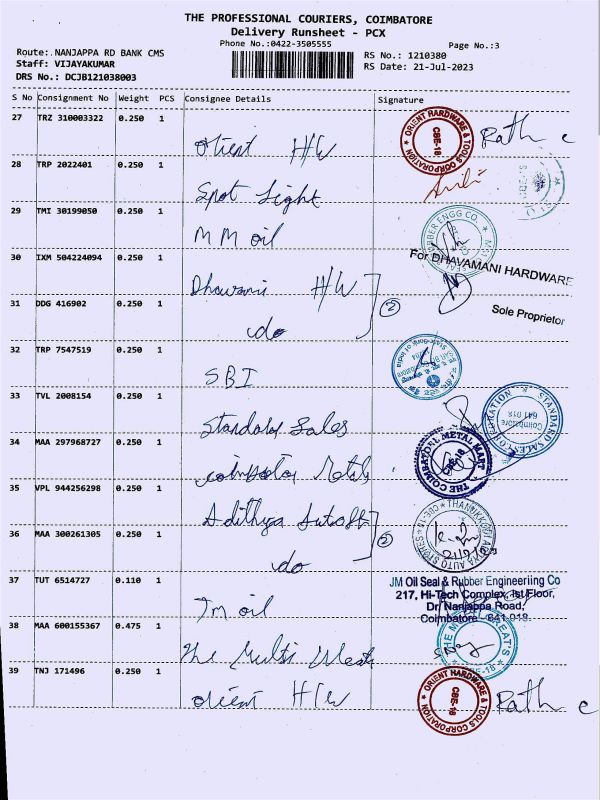 THE PROFESSIONAL COURIERS, COIMBATORE
Delivery Runsheet - PCX
Phone No.:0422-3505555
Page No.:3
Route:.NANJAPPA RD BANK CMS
RS No.: 1210380
Staff: VIJAYAKUMAR
RS Date: 21-Jul-2023
DRS No.: DCJB121038003
S No Consignment No Weight PCS Consignee Details Signature
27 TRZ 310003322 0.250 1 Orient H/W
ORIENT HARDWARE & TOOLS CORPORATION CBE-18
28 TRP 2022401 0.250 1 Spot Light
29 TMI 30199050 0.250 1 MM oil
30 IXM 504224094 0.250 1 Dhavamani H/W
For DHAVAMANI HARDWARE
31 DDG 416902 0.250 1 do 2
Sole Proprietor
32 TRP 7547519 0.250 1 SBI
State Bank of India
33 TVL 2008154 0.250 1 Standard Sales
STANDARD SALES CORPORATION Coimbatore 641 018
34 MAA 297968727 0.250 1 Coimbatore Metals
THE COIMBATORE METAL MART
35 VPL 944256298 0.250 1 Adithya
36 MAA 300261305 0.250 1 do 2
AUTO STORES CBE-18
37 TUT 6514727 0.110 1 Jm oil
JM Oil Seal & Rubber Engineering Co
217, Hi-Tech Complex, Ist Floor,
Dr. Nanjappa Road,
Coimbatore - 641 018.
38 MAA 600155367 0.475 1 The Multi Meats
39 TNJ 171496 0.250 1 Orient H/W
ORIENT HARDWARE & TOOLS CORPORATION CBE-18